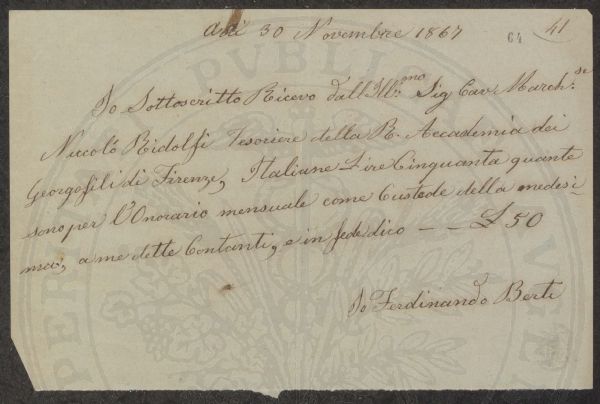 adì 30 Novembre 1867
64
41
Io Sottoscritto Ricevo dall'Ill:mo Sig Cav: March:se
Niccolò Ridolfi Tesoriere della R. Accademia dei
Georgofili di Firenze, Italiane Lire Cinquanta quante
sono per l'Onorario mensuale come Custode della medesi-
ma, a me dette Contanti, e in fede dico — — £ 50
Io Ferdinando Berti